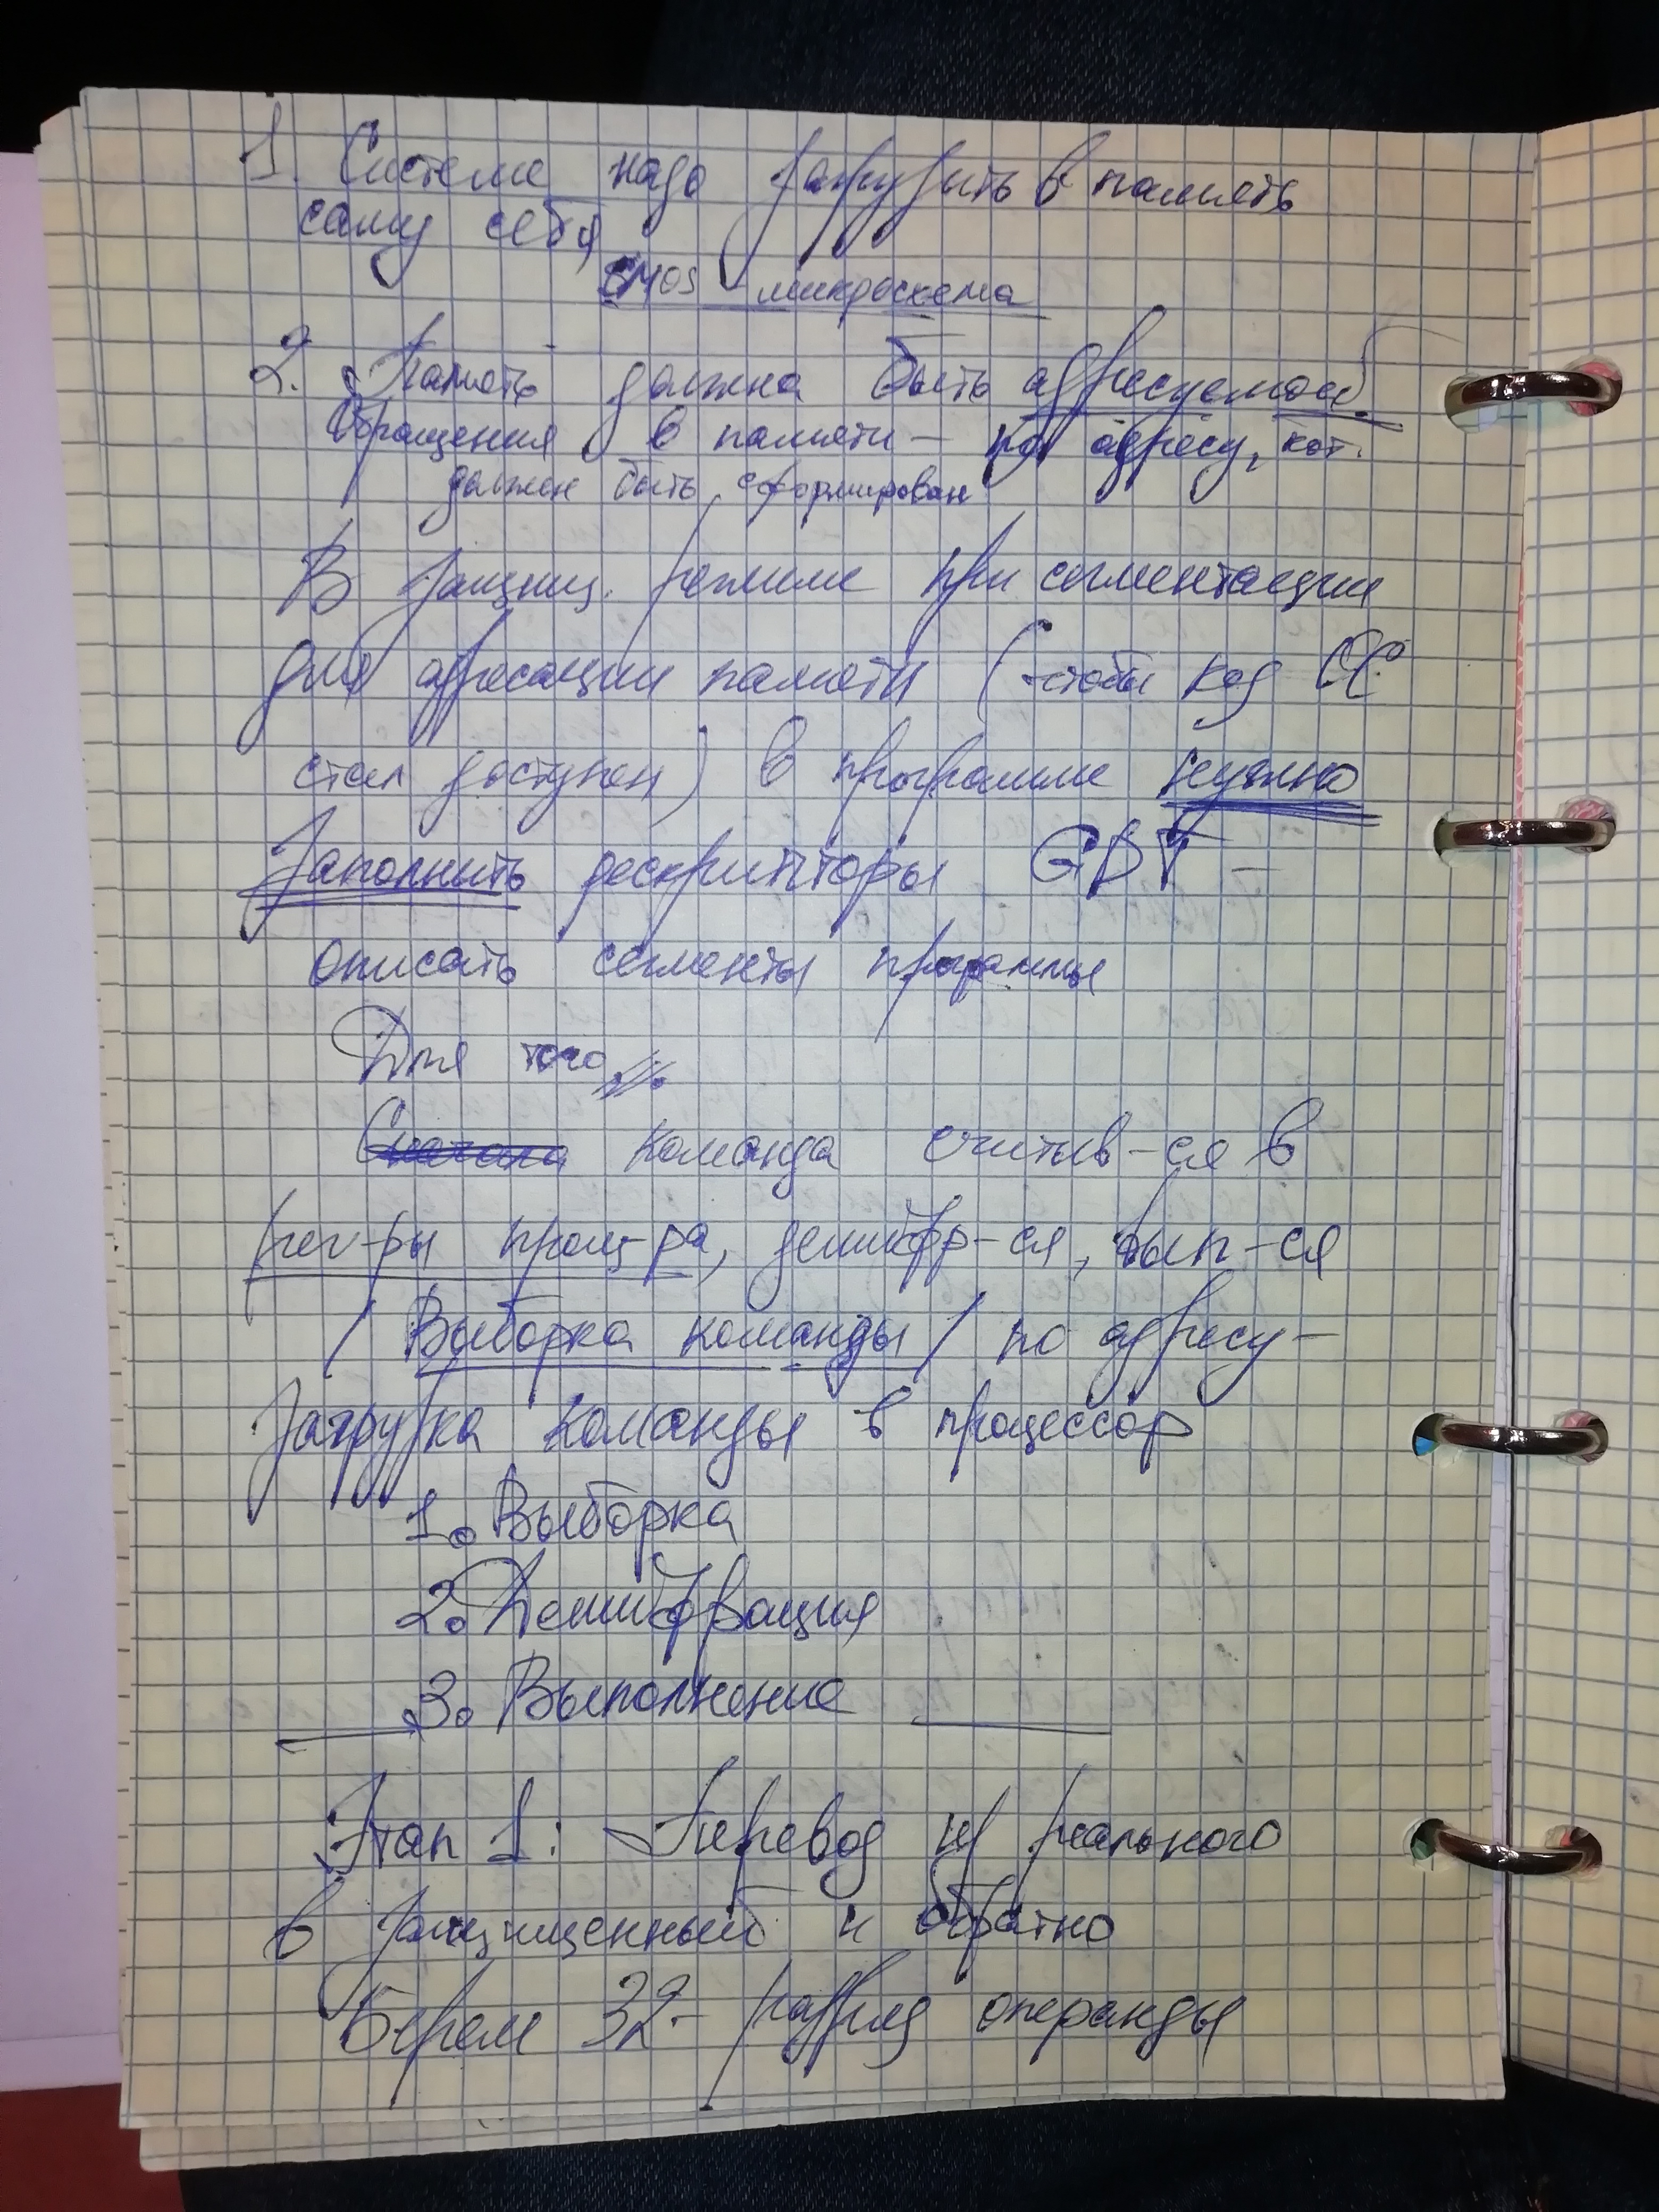 1. Системе надо загрузить в память
саму себя
CMOS - микросхема
2. Память должна быть адресуемой.
Обращения в памяти — по адресу, кот.
должен быть сформирован
В защищ. режиме при сегментации
для адресации памяти (чтобы код ОС
стал доступен) в программе нужно
заполнить дескрипторы GDT —
описать сегменты программы
Для того
Сначала команда считыв-ся в
рег-ры проц-ра, дешифр-ся, вып-ся
/ Выборка команды / по адресу —
загрузка команды в процессор
1. Выборка
2. Дешифрвация
3. Выполнение
Этап 1: Перевод из реального
в защищенный и обратно
Берем 32- разряд операнды